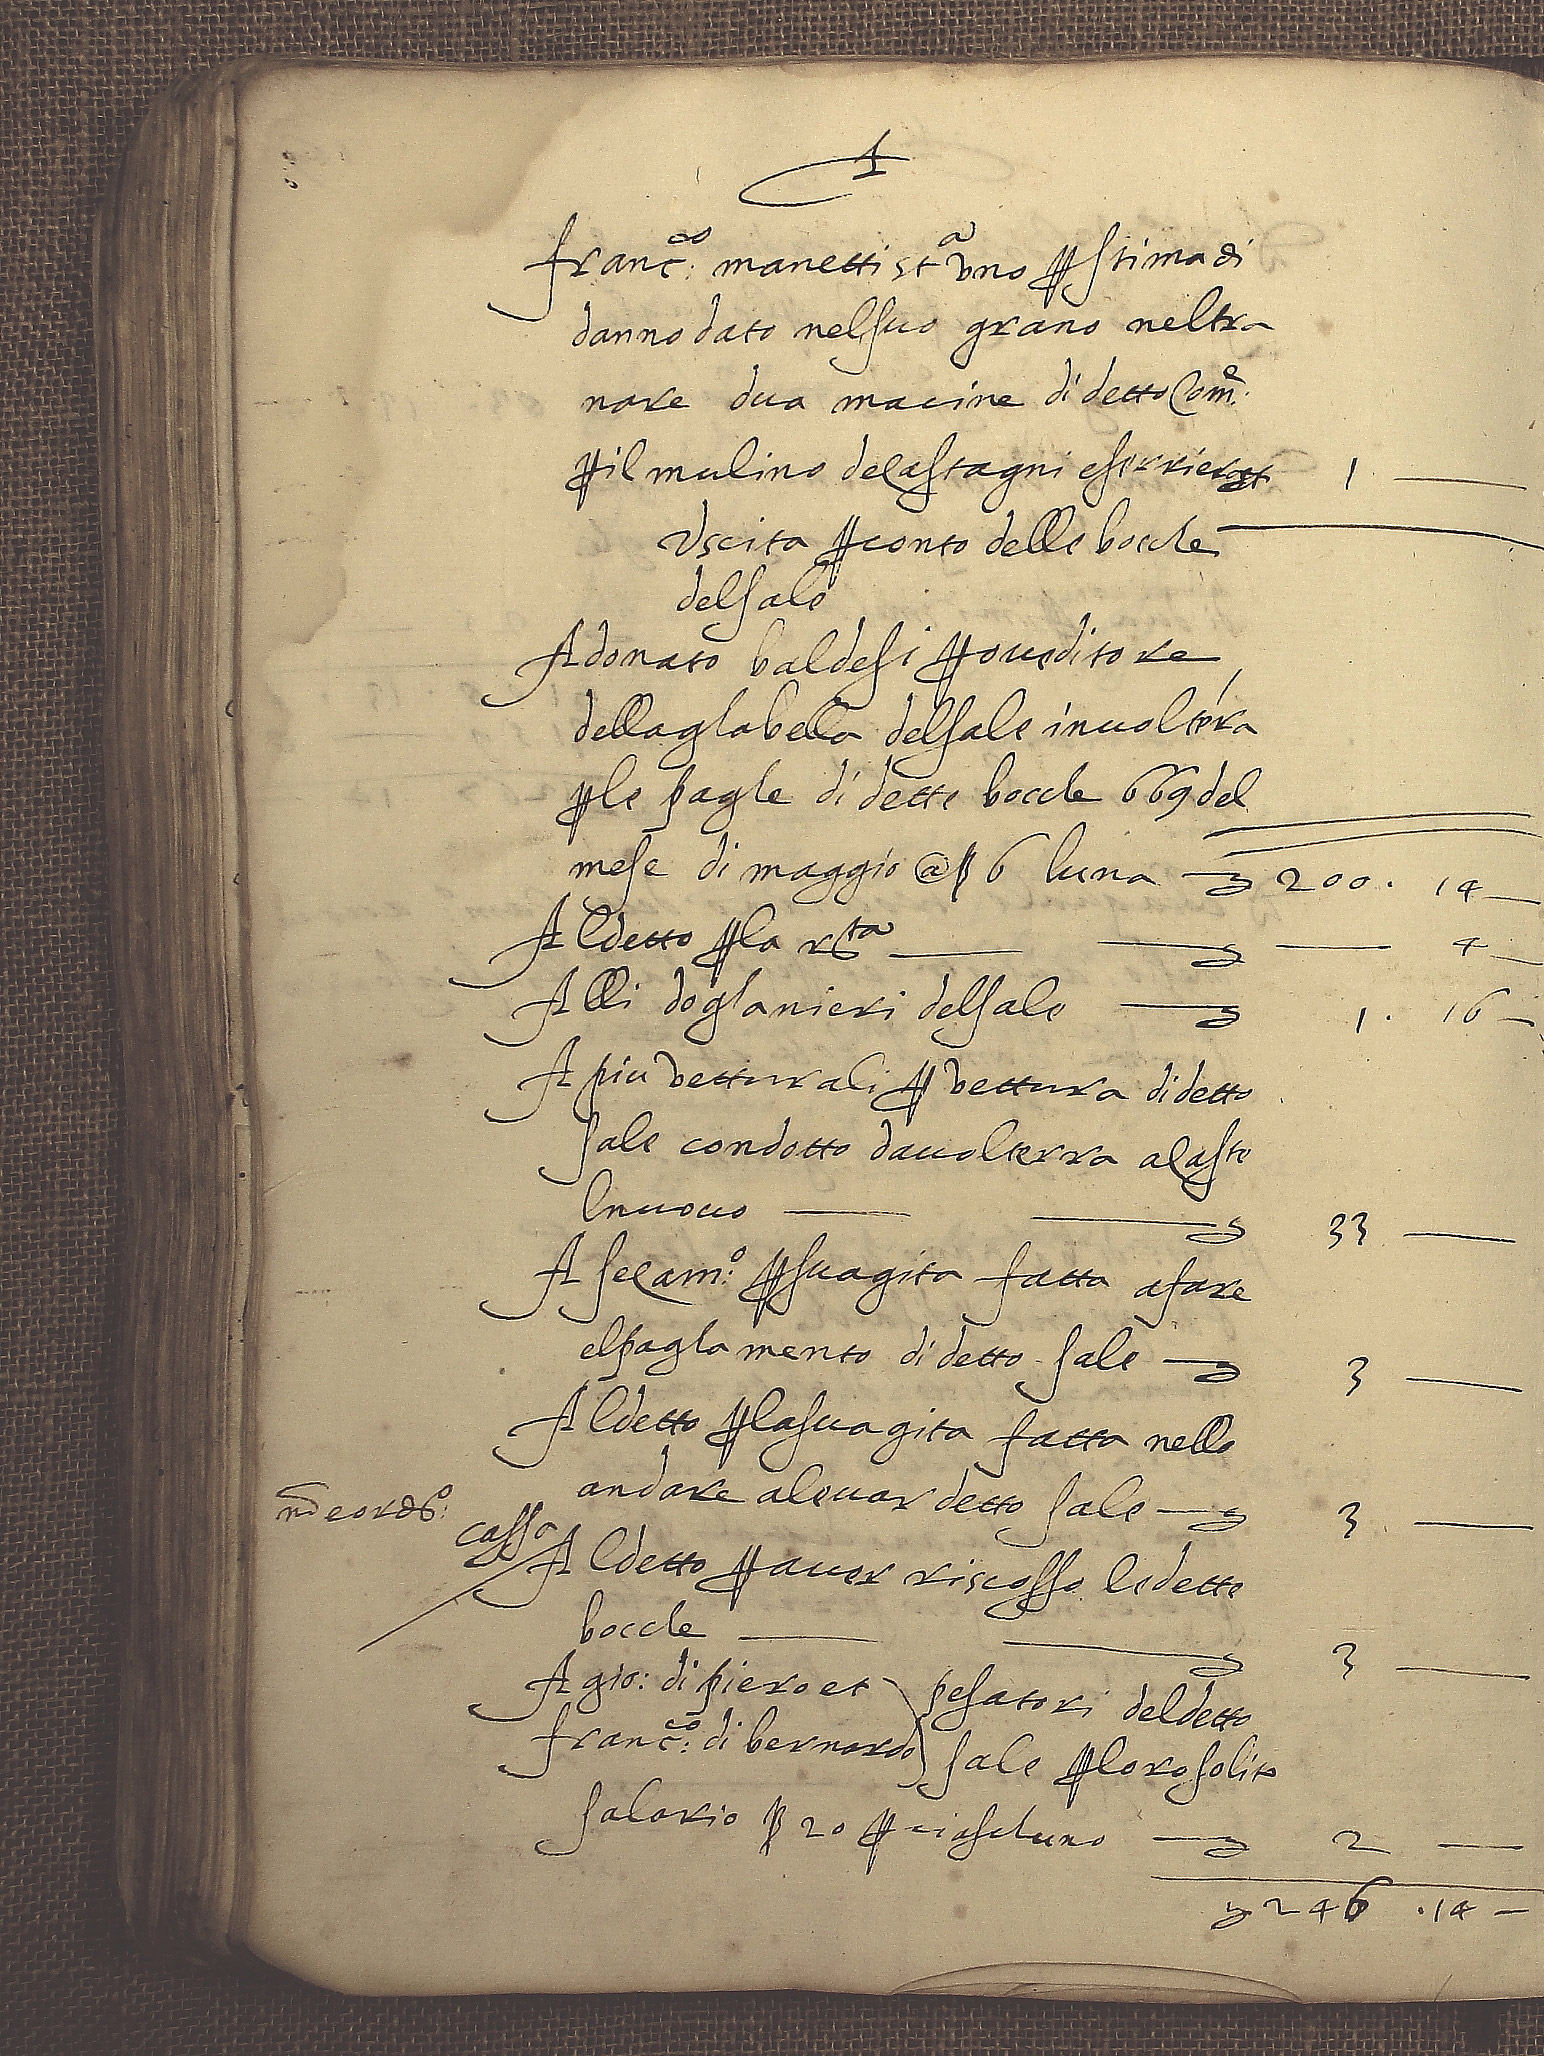 A
franc.co manetti st.a vno p stima di
danno dato nel suo grano nel tra
nare dua macine di detto Com.e
p il mulino
Vscita p conto delle bocche
del sale
A donato baldesi proueditore
della ghabella del sale in uolterra
p le paghe di dette bocche 669 del
mese di maggio @ ß 6 luna 200 . 14 —
Al detto p la r.ta — 4 —
Alli doghanieri del sale 1 . 16 —
A piu vetturali p vettura di detto
sale condotto da uolterra a Caste
lnuouo — 33 —
A ser Cam.o p sua gita fatta a fare
el paghamento di detto sale 3 —
Al detto p la sua gita fatta nello
andare a leuar detto sale 3 —
cassa
Al detto p auer riscosso le dette
bocche — 3 —
A gio: di piero et
franc.co: di bernardo
pesatori del detto
sale p loro solito
salario ß 20 p ciaschuno 2 —
246 . 14 —